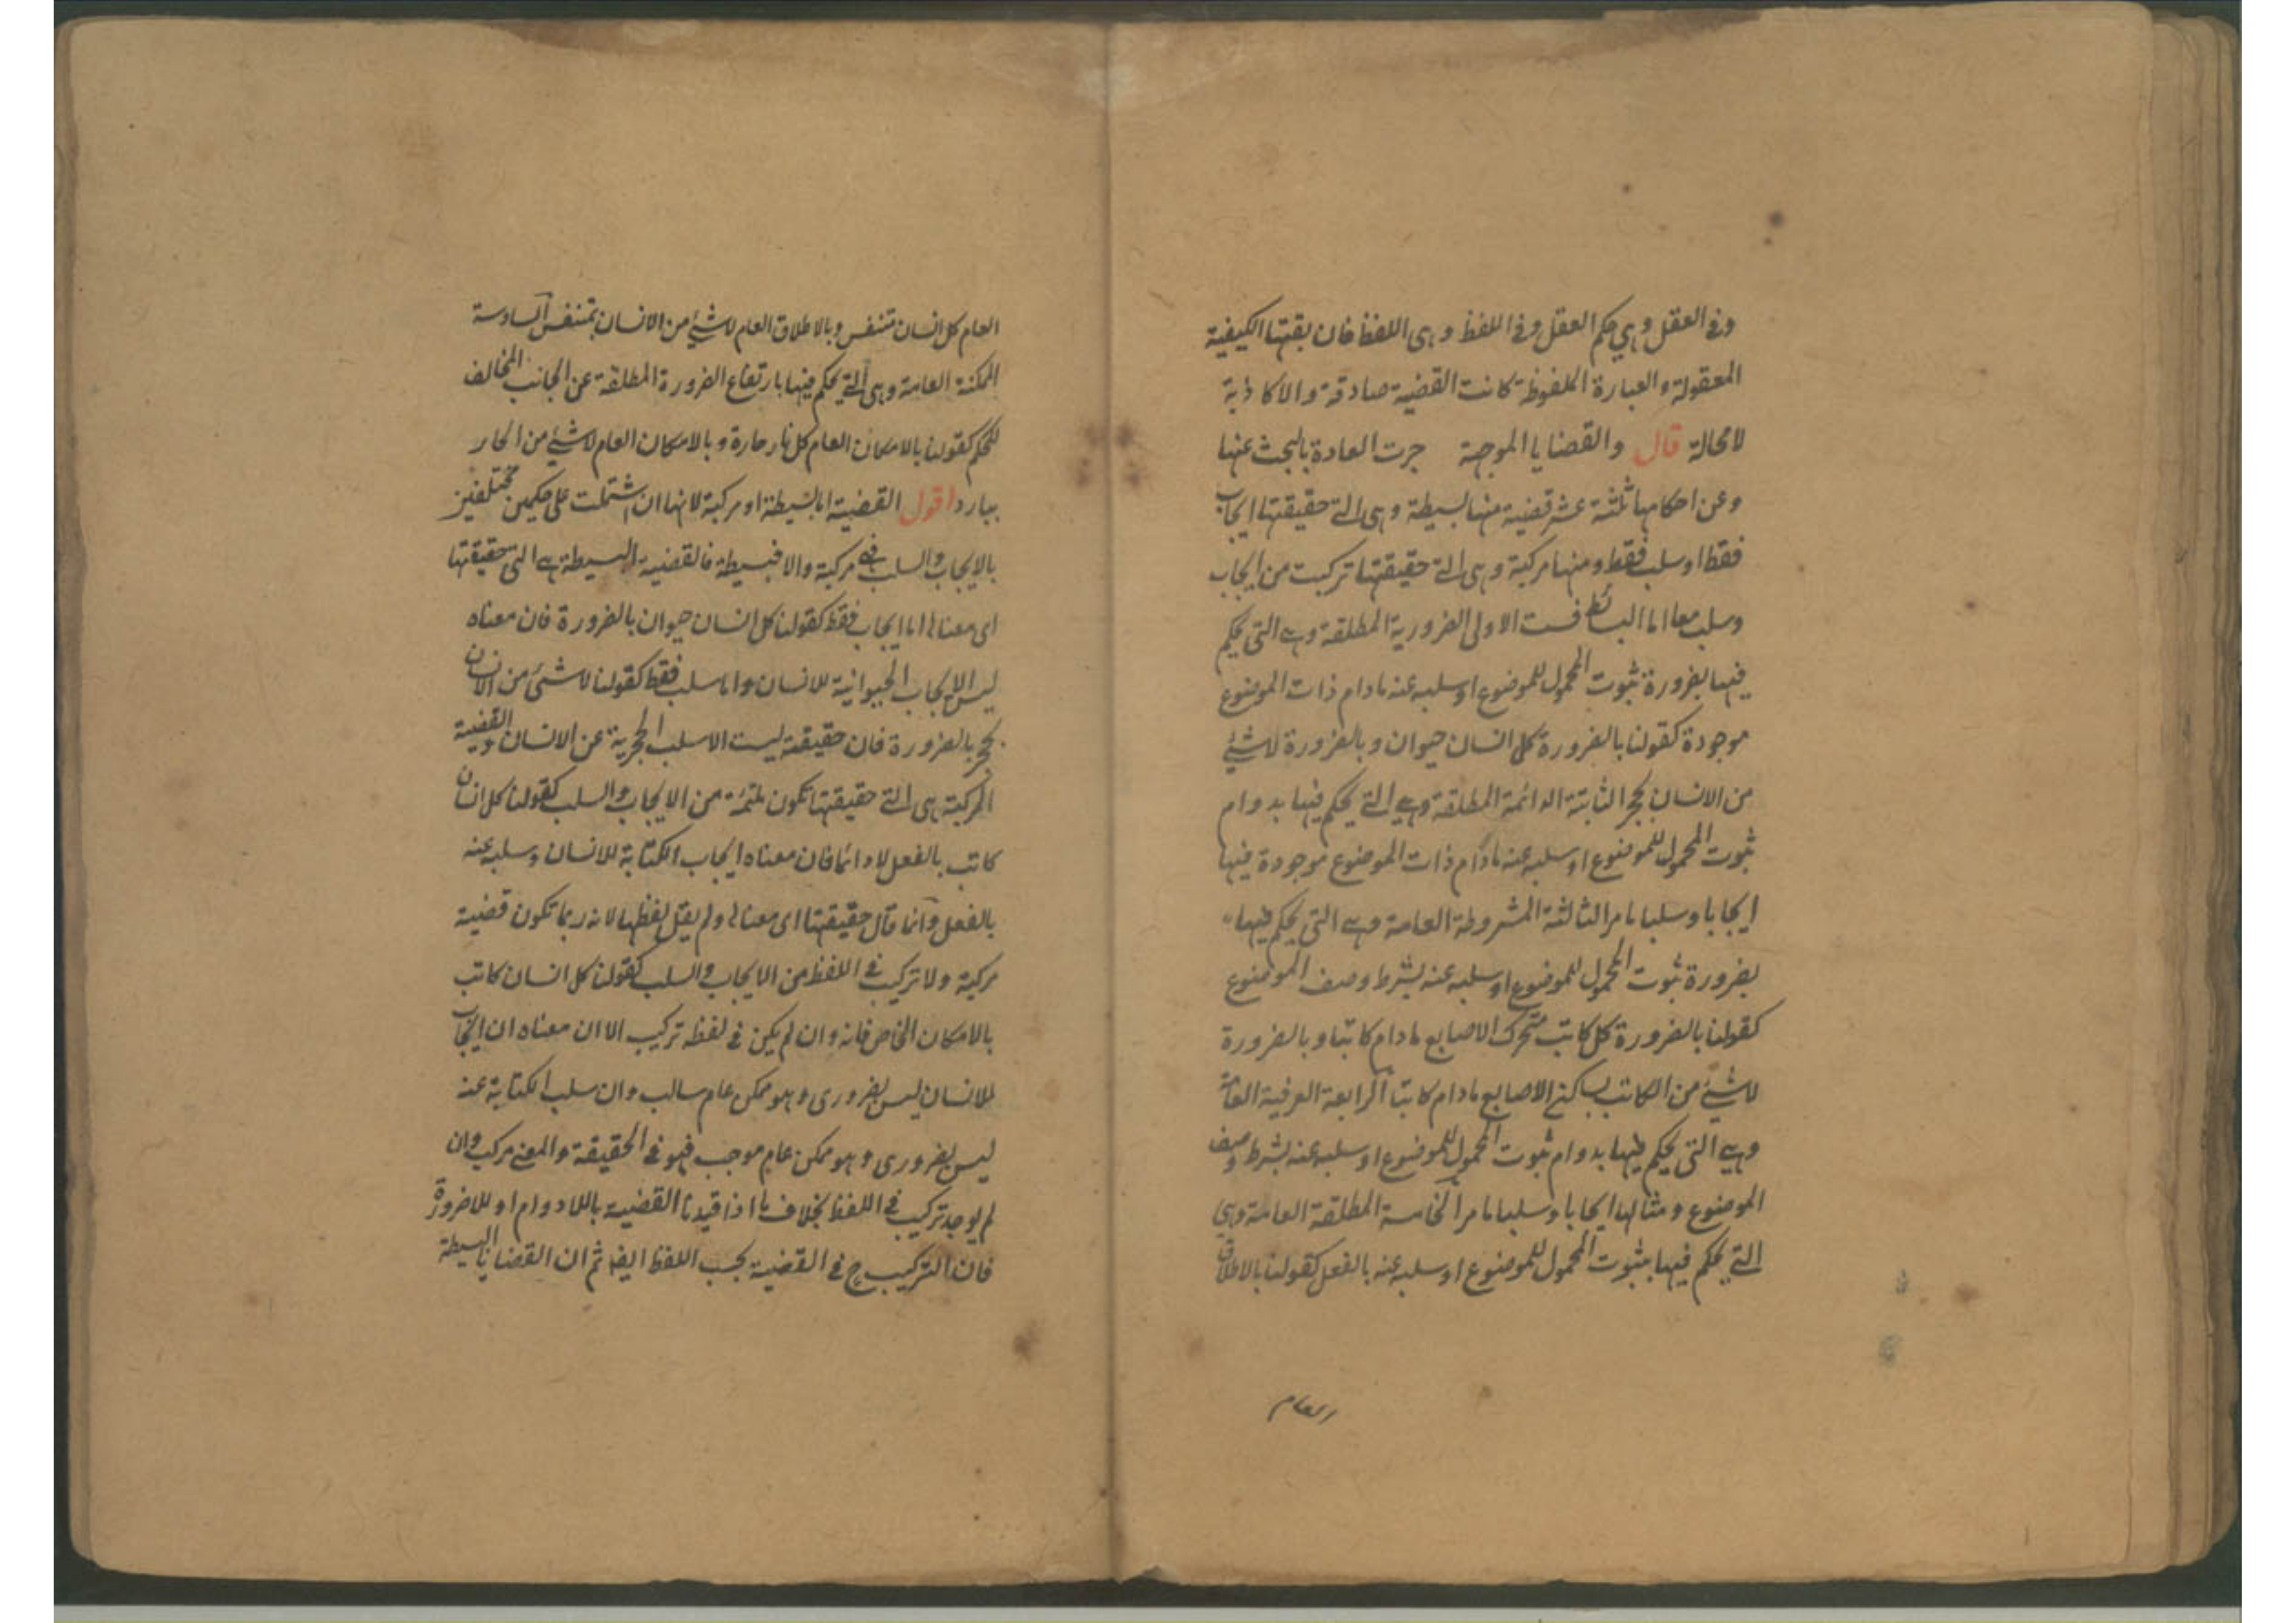 وفي العقل وهي حكم العقل وفي اللفظ وهي اللفظ فان بقتها الكيفية
المعقولة والعبارة الملفوظة كانت القضية صادقة والا كاذبة
لامحالة قال والقضايا الموجهة جرت العادة بالبحث عنها
وعن احكامها ثلثة عشر قضية منها بسيطة وهى التى حقيقتها ايجاب
فقط او سلب فقط ومنها مركبة وهى التى حقيقتها تركبت من ايجاب
وسلب معا اما البسائط فست الاولى الضرورية المطلقة وهى التى يحكم
فيها بضرورة ثبوت المحمول للموضوع او سلبه عنه مادام ذات الموضوع
موجودة كقولنا بالضرورة كل انسان حيوان وبالضرورة لاشئ
من الانسان بحجر الثانية الدائمة المطلقة وهى التى يحكم فيها بدوام
ثبوت المحمول للموضوع او سلبه عنه مادام ذات الموضوع موجودة فيها
ايجابا وسلبا ما مر الثالثة المشروطة العامة وهى التى يحكم فيها
بضرورة ثبوت المحمول للموضوع او سلبه عنه بشرط وصف الموضوع
كقولنا بالضرورة كل كاتب متحرك الاصابع مادام كاتبا وبالضرورة
لاشئ من الكاتب بساكن الاصابع مادام كاتبا الرابعة العرفية العامة
وهي التى يحكم فيها بدوام ثبوت المحمول للموضوع او سلبه عنه بشرط وصف
الموضوع ومثالها ايجابا وسلبا ما مر الخامسة المطلقة العامة وهي
التى يحكم فيها بثبوت المحمول للموضوع او سلبه عنه بالفعل كقولنا بالاطلاق
العام
العام كل انسان متنفس وبالاطلاق العام لاشئ من الانسان بمتنفس السادسة
الممكنة العامة وهى التى يحكم فيها بارتفاع الضرورة المطلقة عن الجانب المخالف
للحكم كقولنا بالامكان العام كل نار حارة وبالامكان العام لاشئ من الحار
ببارد اقول القضية اما بسيطة او مركبة لانها ان اشتملت على حكمين مختلفين
بالايجاب والسلب فهى مركبة والا فبسيطة فالقضية البسيطة هى التى حقيقتها
اى معناها اما ايجاب فقط كقولنا كل انسان حيوان بالضرورة فان معناه
ليس الا ايجاب الحيوانية للانسان واما سلب فقط كقولنا لاشئ من الانسان
بحجر بالضرورة فان حقيقته ليست الا سلب الحجرية عن الانسان والقضية
المركبة هى التى حقيقتها تكون ملتئمة من الايجاب والسلب كقولنا كل انسان
كاتب بالفعل لا دائما فان معناه ايجاب الكتابة للانسان وسلبه عنه
بالفعل وانما قال حقيقتها اى معناها ولم يقل لفظها لانه ربما تكون قضية
مركبة ولا تركيب في اللفظ من الايجاب والسلب كقولنا كل انسان كاتب
بالامكان الخاص فانه وان لم يكن فى لفظه تركيب الا ان معناه ان ايجاب
للانسان ليس بضرورى وهو ممكن عام سالب وان سلب الكتابة عنه
ليس بضرورى وهو ممكن عام موجب فهو فى الحقيقة والمعنى مركب وان
لم يوجد تركيب فى اللفظ بخلاف ما اذا قيدنا القضية باللادوام او اللاضرورة
فان التركيب ح فى القضية بحسب اللفظ ايضا ثم ان القضايا البسيطة